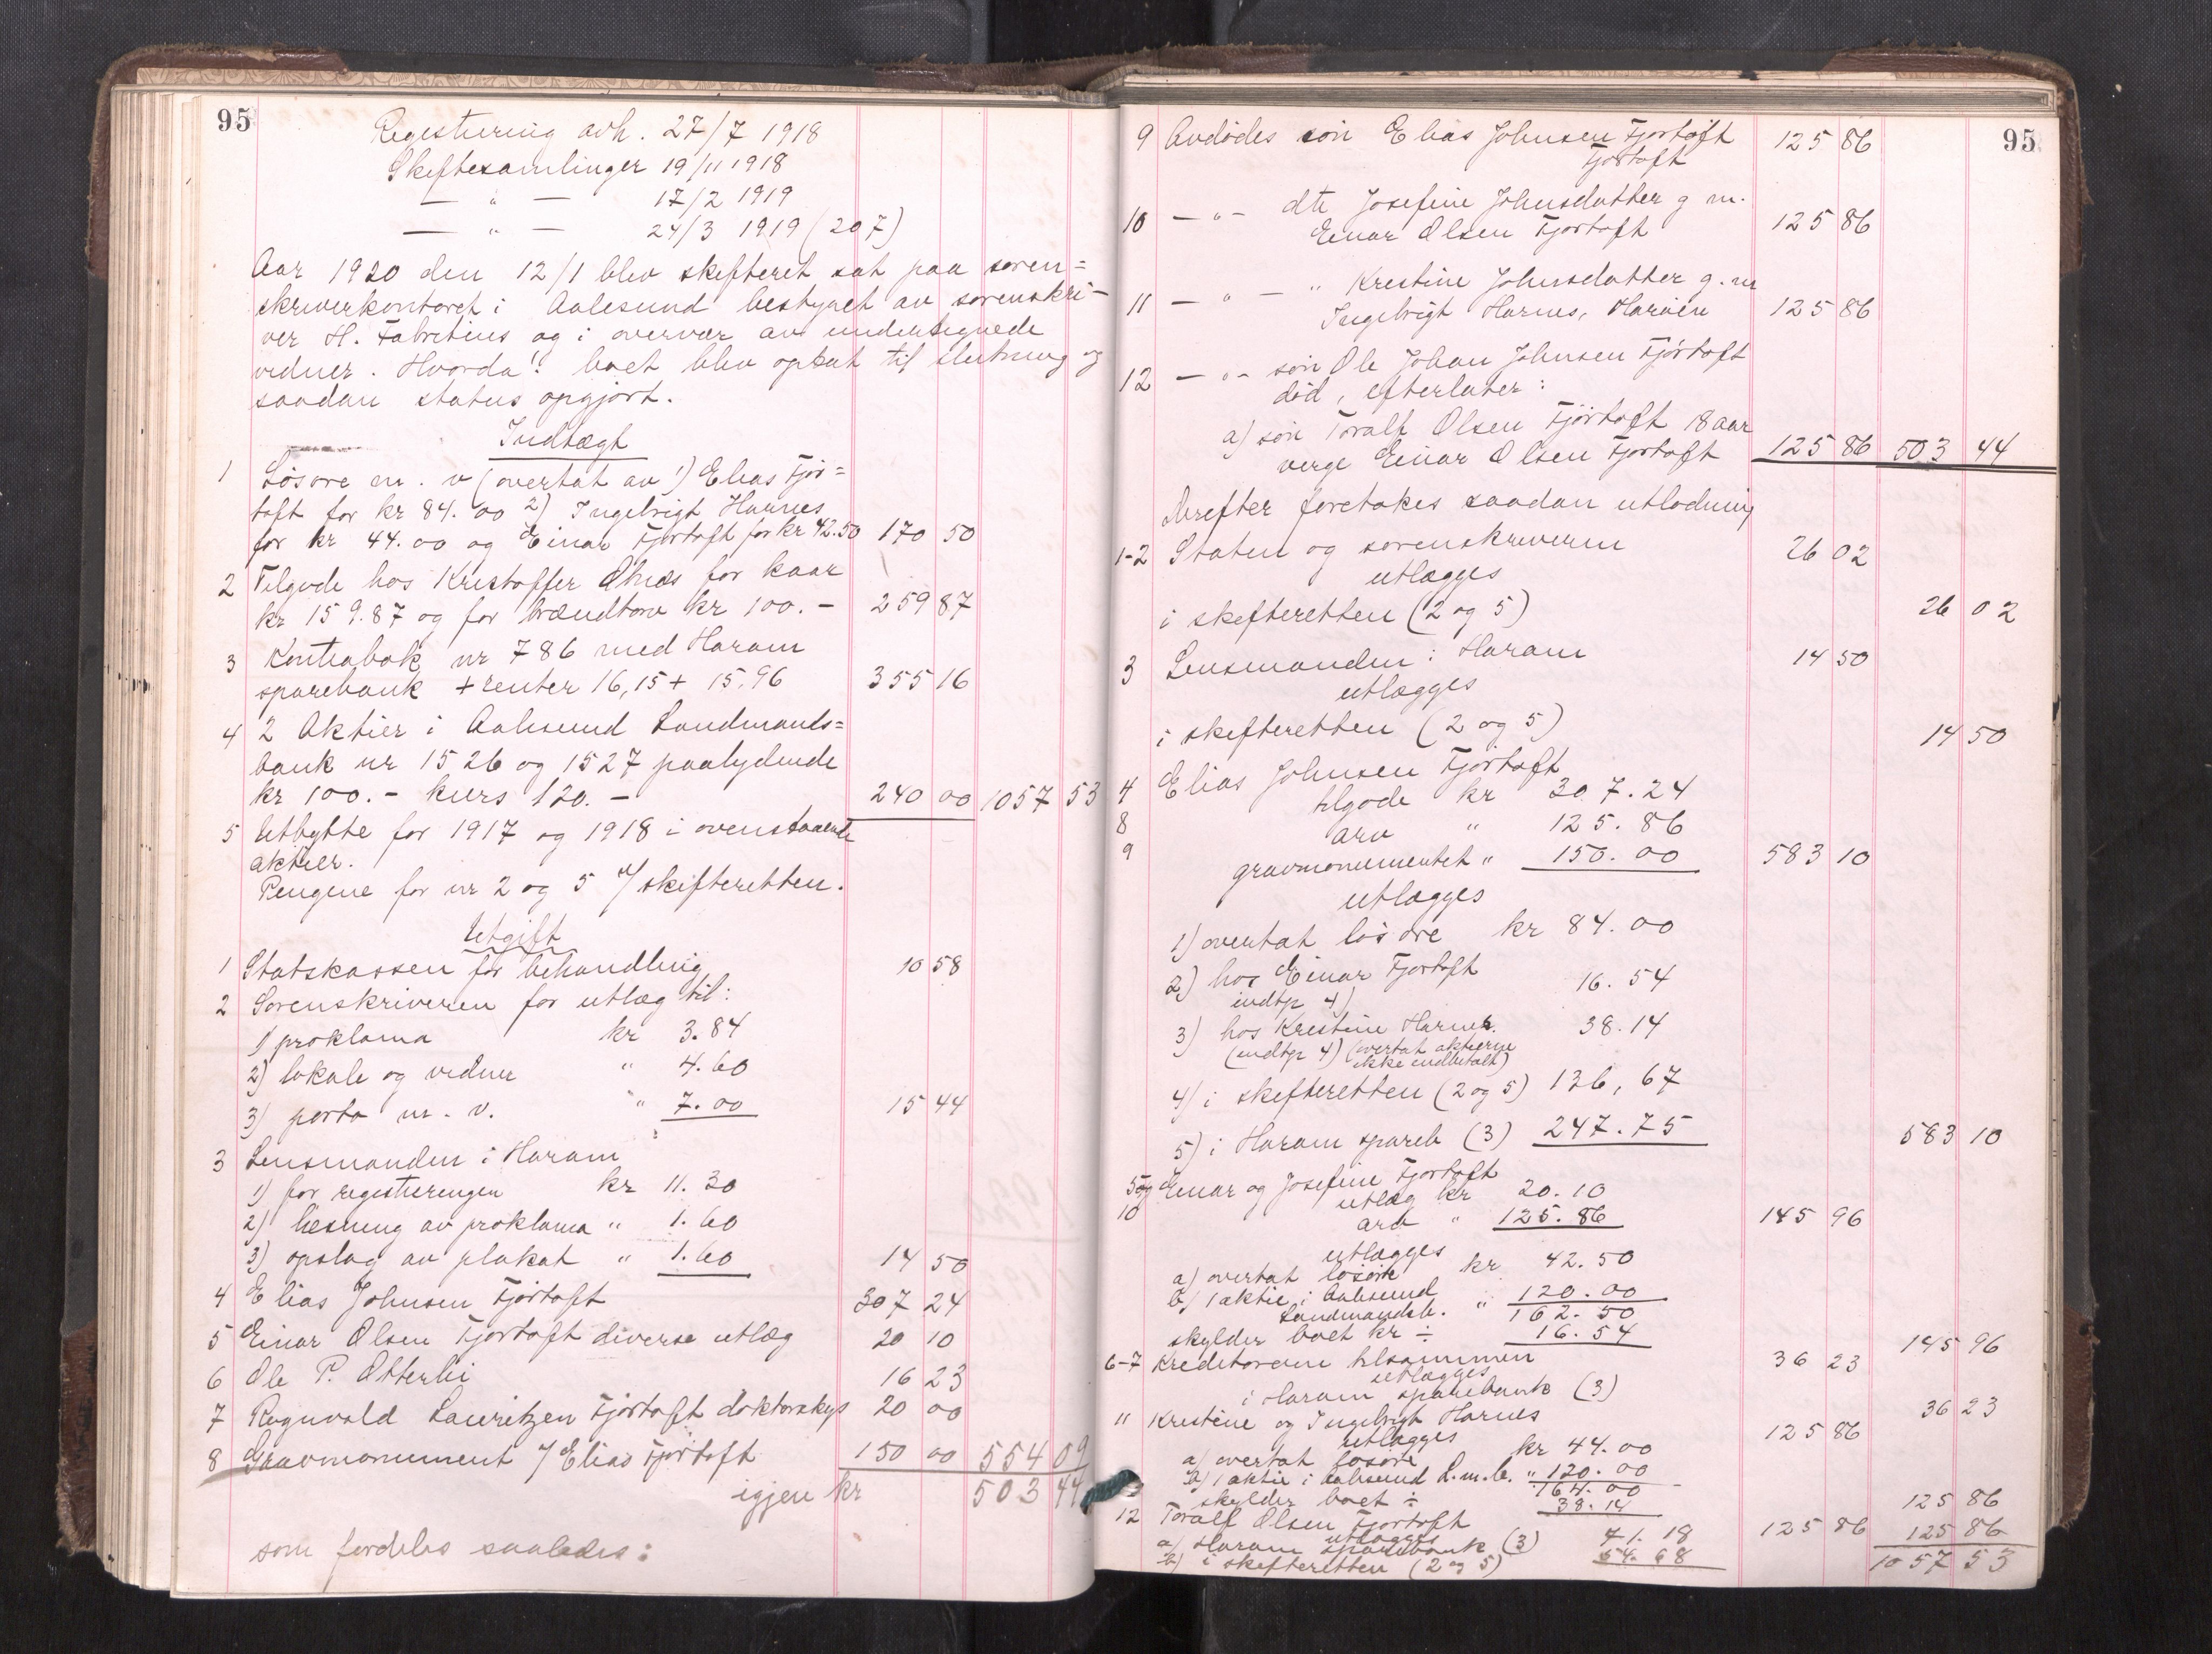 95
Registrering avh. 27/7 1918
Skiftesamlinger 19/11 1918
— " — 17/2 1919
— " — 24/3 1919 (207)
Aar 1920 den 12/1 blev skifteret sat paa soren=
skriverkontoret i Aalesund bestyret av sorenskri-
ver H. Fabritius og i overvær av undertegnede
vidner. Hvorda! boet blev optat til slutning og
saadan status opgjort.
Indtægt
1 Løsøre m. v (overtat av 1) Elias Fjør=
toft for kr 84.00 2) Ingebrigt Harnes
for kr 44.00 og Einar Fjørtoft for kr 42.50 170 50
2 Tilgode hos Kristoffer for kaar
kr 159.87 og for brændtorv kr 100.- 259 87
3 Kontrabok nr 786 med Haram
sparebank + renter 16,15 + 15.96 355 16
4 2 Aktier i Aalesund Landmands=
bank nr 1526 og 1527 paalydende
kr 100.- kurs 120.- 240 00 1057 53
5 Utbytte for 1917 og 1918 i ovenstaaende
aktier.
Pengene for nr 2 og 5 i/ skifteretten.
Utgift
1 Statskassen for behandling 10 58
2 Sorenskriveren for utlæg til:
1) proklama kr 3.84
2) lokale og vidner " 4.60
3) porto m. v. " 7.00 15 44
3 Lensmanden i Haram
1) for registreringen kr 11.30
2) læsning av proklama " 1.60
3) opslag av plakat " 1.60 14 50
4 Elias Johnsen Fjørtoft 307 24
5 Einar Olsen Fjørtoft diverse utlæg 20 10
6 Ole P. Otterlei 16 23
7 Ragnvald Lauritzen Fjørtoft doktorskyds 20 00
8 Gravmonument / Elias Fjørtoft 150 00 554 09
igjen kr 503 44
som fordeles saaledes:
95
9 Avdødes søn Elias Johnsen Fjørtoft 125 86
Fjørtoft
10 — " — dtr Josefine Johnsdatter g m.
Einar Olsen Fjørtoft 125 86
11 — " — " Kristine Johnsdatter g. m
Ingebrigt Harnes, Harøen 125 86
12 — " — søn Ole Johan Johnsen Fjørtoft
død, efterlater:
a) søn Toralf Olsen Fjørtoft 18 aar
verge Einar Olsen Fjørtoft 125 86 503 44
Derefter foretokes saadan utlodning
1-2 Staten og sorenskriveren 26 02
utlægges
i skifteretten (2 og 5) 26 02
3 Lensmanden i Haram 14 50
utlægges
i skifteretten (2 og 5) 14 50
4 Elias Johnsen Fjørtoft
tilgode kr 307.24
8 arv " 125.86
9 gravmonumentet " 150.00 583 10
utlægges
1) overtat løsøre kr 84.00
2) hos Einar Fjørtoft 16.54
indtg 4)
3) hos Kristine Harnes. 38.14
(indtg 4) (overtat aktierne
ikke indbetalt)
4) i skifteretten (2 og 5) 136,67
5) i Haram spareb (3) 247.75 583 10
5 og Einar og Josefine Fjørtoft
utlæg kr 20.10
10 arv " 125.86 145 96
utlægges
a) overtat løsøre kr 42.50
b) 1 aktie i Aalesund
Landmandsb. " 120.00
162.50
skylder boet kr ÷ 16.54 145 96
6-7 Kreditorerne tilsammen 36 23
utlægges
i Haram sparebank (3) 36 23
11 Kristine og Ingebrigt Harnes 125 86
utlægges
a) overtat løsøre kr 44.00
b) 1 aktie i Aalesund L.m.b. " 120.00
164.00
skylder boet ÷ 38.14 125 86
12 Toralf Olsen Fjørtoft 125 86 125 86
utlægges
a) Haram sparebank (3) 71.18
b) i skifteretten (2 og 5) 54.68 1057 53